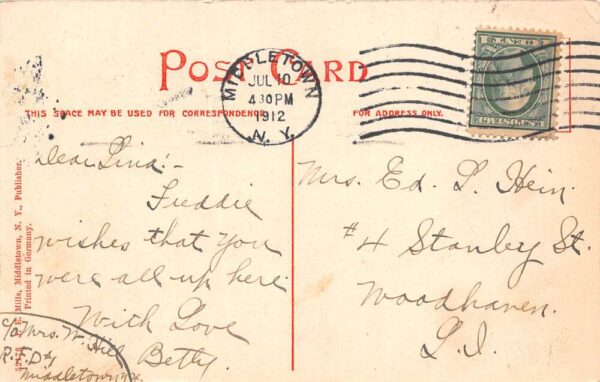 POST CARD
MIDDLETOWN
JUL 10
4 30 PM
1912
N. Y.
THIS SPACE MAY BE USED FOR CORRESPONDENCE
FOR ADDRESS ONLY.
Dear Lina:-
Freddie
wishes that you
were all up here
With Love
Betty.
c/o Mrs. W. Hill
R. F. D #4
Middletown N.Y.
Mrs. Ed. L. Hein.
#4 Stanley St.
Woodhaven.
L. I.
52178 J. E. Mills, Middletown, N. Y., Publisher.
Printed in Germany.
U.S. POSTAGE